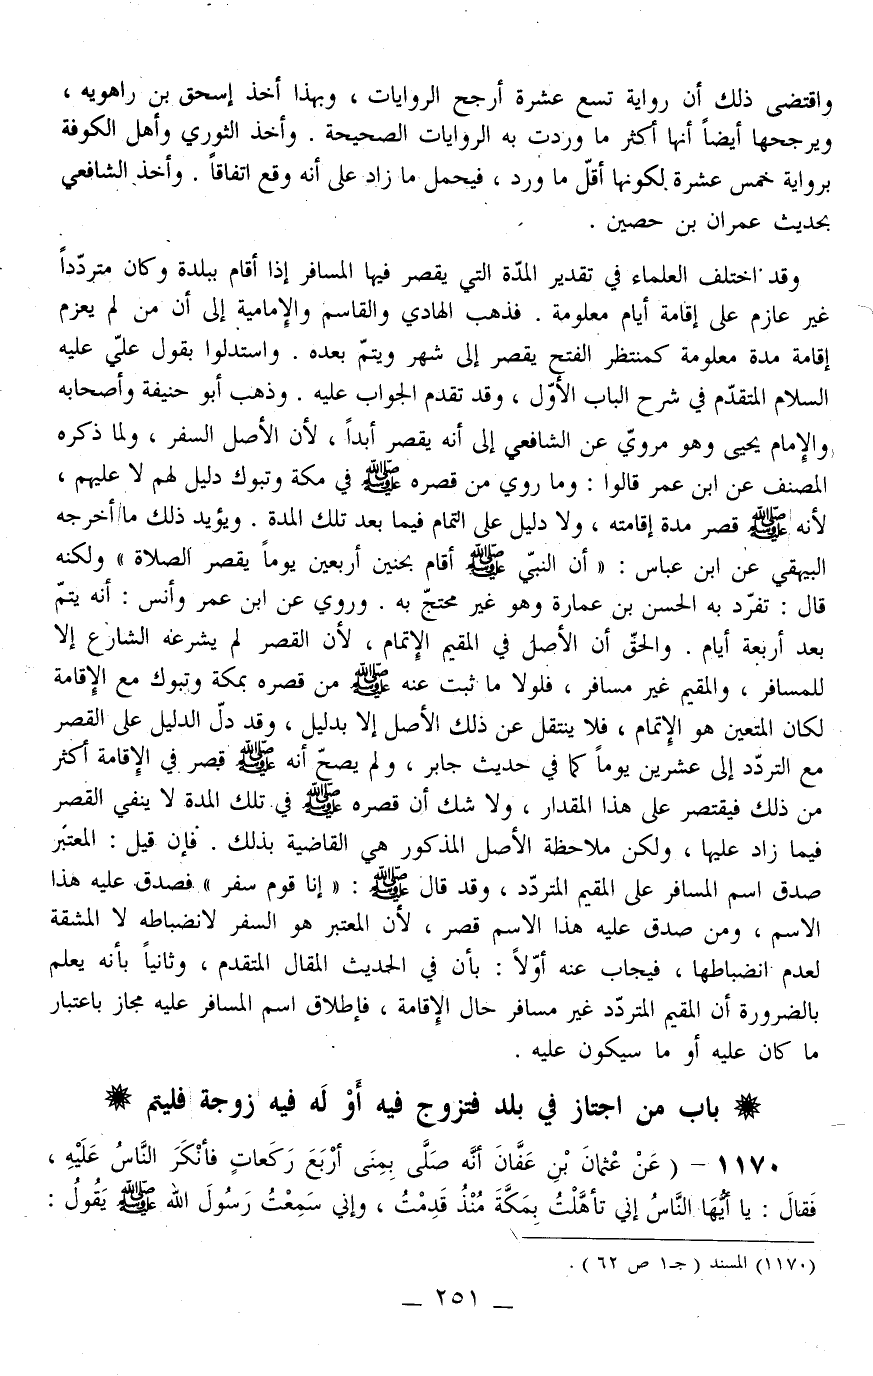 واقتضى ذلك أن رواية تسع عشرة أرجح الروايات ، وبهذا أخذ إسحق بن راهويه ،
ويرجحها أيضاً أنها أكثر ما وردت به الروايات الصحيحة . وأخذ الثوري وأهل الكوفة
برواية خمس عشرة لكونها أقلّ ما ورد ، فيحمل ما زاد على أنه وقع اتفاقاً . وأخذ الشافعي
بحديث عمران بن حصين .
وقد اختلف العلماء في تقدير المدّة التي يقصر فيها المسافر إذا أقام ببلدة وكان متردّداً
غير عازم على إقامة أيام معلومة . فذهب الهادي والقاسم والإمامية إلى أن من لم يعزم
إقامة مدة معلومة كمنتظر الفتح يقصر إلى شهر ويتمّ بعده . واستدلوا بقول عليّ عليه
السلام المتقدّم في شرح الباب الأوّل ، وقد تقدم الجواب عليه . وذهب أبو حنيفة وأصحابه
والإمام يحيى وهو مرويّ عن الشافعي إلى أنه يقصر أبداً ، لأن الأصل السفر ، ولما ذكره
المصنف عن ابن عمر قالوا : وما روي من قصره ﷺ في مكة وتبوك دليل لهم لا عليهم ،
لأنه ﷺ قصر مدة إقامته ، ولا دليل على التمام فيما بعد تلك المدة . ويؤيد ذلك ما أخرجه
البيهقي عن ابن عباس : « أن النبيّ ﷺ أقام بحنين أربعين يوماً يقصر الصلاة » ولكنه
قال : تفرّد به الحسن بن عمارة وهو غير محتجّ به . وروي عن ابن عمر وأنس : أنه يتمّ
بعد أربعة أيام . والحقّ أن الأصل في المقيم الإتمام ، لأن القصر لم يشرعه الشارع إلا
للمسافر ، والمقيم غير مسافر ، فلولا ما ثبت عنه ﷺ من قصره بمكة وتبوك مع الإقامة
لكان المتعين هو الإتمام ، فلا ينتقل عن ذلك الأصل إلا بدليل ، وقد دلّ الدليل على القصر
مع التردّد إلى عشرين يوماً كما في حديث جابر ، ولم يصحّ أنه ﷺ قصر في الإقامة أكثر
من ذلك فيقتصر على هذا المقدار ، ولا شك أن قصره ﷺ في تلك المدة لا ينفي القصر
فيما زاد عليها ، ولكن ملاحظة الأصل المذكور هي القاضية بذلك . فإن قيل : المعتبر
صدق اسم المسافر على المقيم المتردّد ، وقد قال ﷺ : « إنا قوم سفر » فصدق عليه هذا
الاسم ، ومن صدق عليه هذا الاسم قصر ، لأن المعتبر هو السفر لانضباطه لا المشقة
لعدم انضباطها ، فيجاب عنه أوّلاً : بأن في الحديث المقال المتقدم ، وثانياً بأنه يعلم
بالضرورة أن المقيم المتردّد غير مسافر حال الإقامة ، فإطلاق اسم المسافر عليه مجاز باعتبار
ما كان عليه أو ما سيكون عليه .
باب من اجتاز في بلد فتزوج فيه أَوْ لَه فيه زوجة فليتم
١١٧٠ – ( عَنْ عُثْمَانَ بْنِ عَفَّانَ أنَّه صَلَّى بِمِنَى أرْبَعَ رَكَعاتٍ فأنْكَرَ النَّاسُ عَلَيْهِ ،
فَقالَ : يا أيُّهَا النَّاسُ إني تأهَّلْتُ بِمَكَّةَ مُنْذُ قَدِمْتُ ، وإني سَمِعْتُ رَسُولَ الله ﷺ يَقُولُ :
(١١٧٠) المسند ( جـ١ ص ٦٢ ) .
– ٢٥١ –